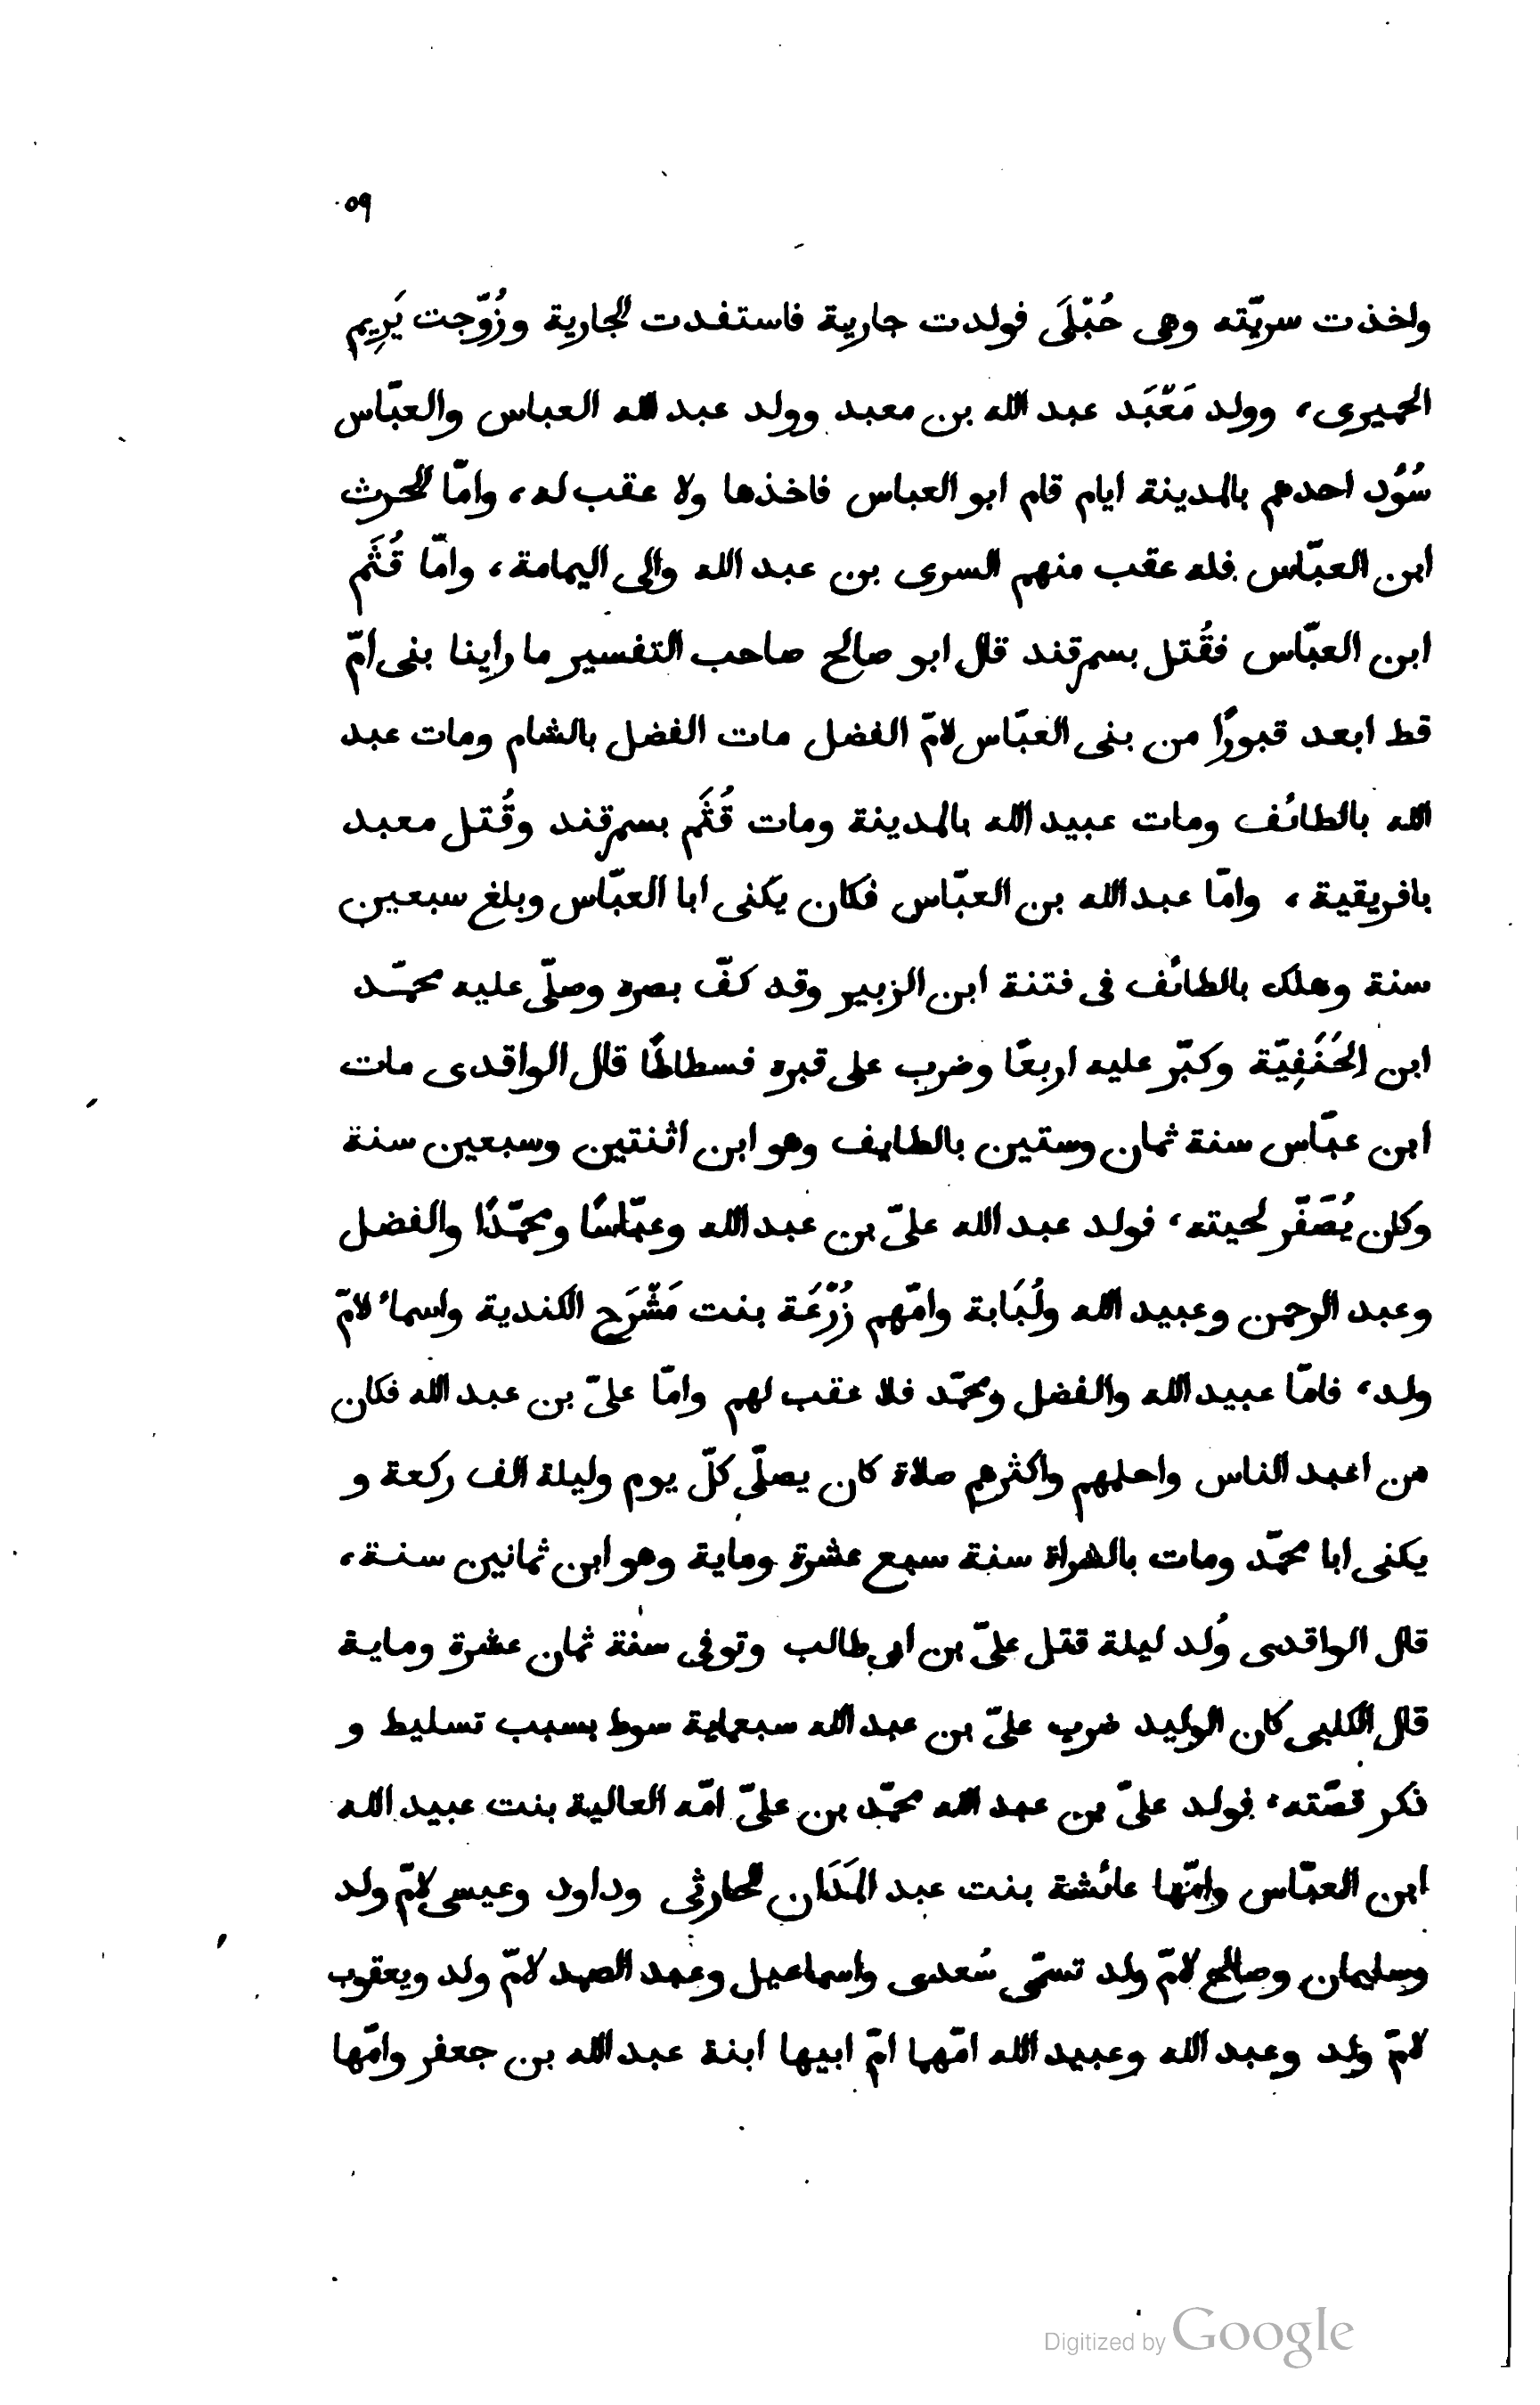 ٥٩
واخذت سريّته وهى حُبْلَى فولدت جارية فاستفدت الجارية وزُوّجت يَرِيم
الحميرى، وولد مَعْبَد عبد الله بن معبد وولد عبد الله العباس والعبّاس
سُوُد احدهم بالمدينة ايام قام ابو العباس فاخذها ولا عقب له، وامّا الحرث
ابن العبّاس فله عقب منهم السرى بن عبد الله والى اليمامة، وامّا قُثَم
ابن العبّاس فقُتل بسمرقند قال ابو صالح صاحب التفسير ما راينا بنى امّ
قط ابعد قبورًا من بنى العبّاس لامّ الفضل مات الفضل بالشام ومات عبد
الله بالطائف ومات عبيد الله بالمدينة ومات قُثَم بسمرقند وقُتل معبد
بافريقية، وامّا عبد الله بن العبّاس فكان يكنى ابا العبّاس وبلغ سبعين
سنة وهلك بالطائف فى فتنة ابن الزبير وقد كفّ بصره وصلّى عليه محمّد
ابن الحَنَفِيّة وكبّر عليه اربعًا وضرب على قبره فسطاطًا قال الواقدى مات
ابن عبّاس سنة ثمان وستين بالطايف وهو ابن اثنتين وسبعين سنة
وكان يُصَفّر لحيته، فولد عبد الله علىّ بن عبد الله وعبّاسًا ومحمّدًا والفضل
وعبد الرحمن وعبيد الله ولُبَابة وامّهم زُرْعَة بنت مَشْرَح الكندية واسماءُ لامّ
ولد، فامّا عبيد الله والفضل ومحمّد فلا عقب لهم وامّا علىّ بن عبد الله فكان
من اعبد الناس واحلمهم واكثرهم صلاة كان يصلّى كلّ يوم وليلة الف ركعة و
يكنى ابا محمّد ومات بالشراة سنة سبع عشرة وماية وهو ابن ثمانين سنة،
قال الواقدى وُلد ليلة قتل علىّ بن ابى طالب وتوفى سنة ثمان عشرة وماية
قال الكلبى كان الوليد ضرب علىّ بن عبد الله سبعماية سوط بسبب تسليط و
ذكر قصّته، فولد علىّ بن عبد الله محمّد بن علىّ امّه العالية بنت عبيد الله
ابن العبّاس وامّها عائشة بنت عبد المَدَان الحارثى وداود وعيسى لامّ ولد
وسليمان وصالح لامّ ولد تسمّى سُعدى واسماعيل وعبد الصمد لامّ ولد ويعقوب
لامّ ولد وعبد الله وعبيد الله امّهما امّ ابيها ابنة عبد الله بن جعفر وامّها
Digitized by Google